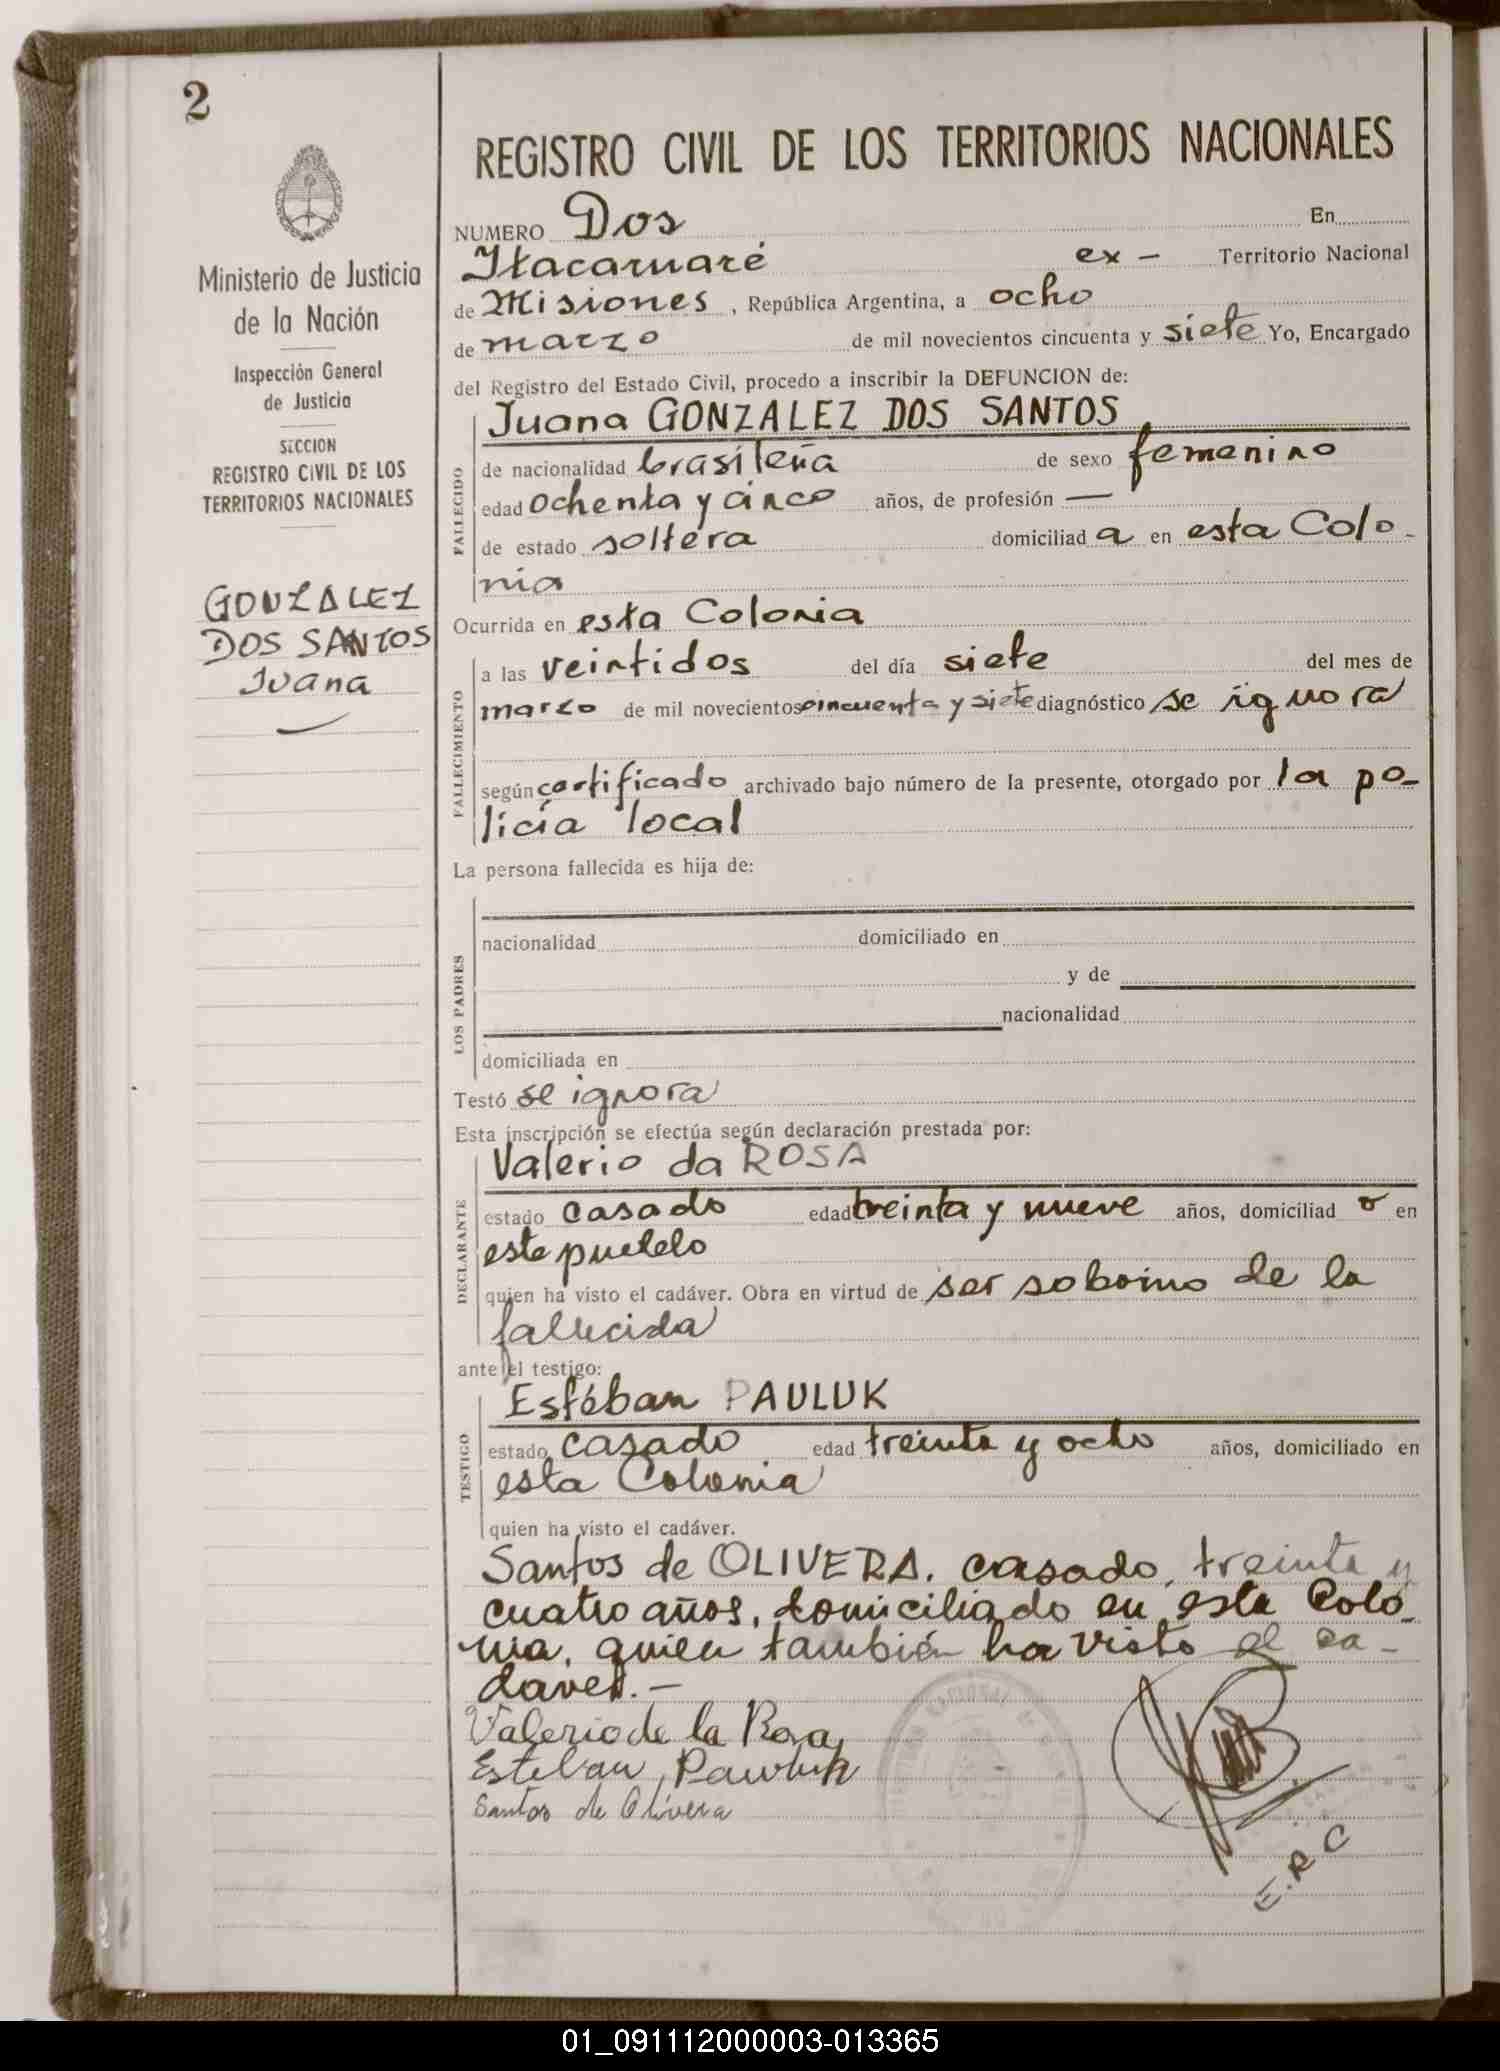 2
Ministerio de Justicia
de la Nación
Inspección General
de Justicia
SECCION
REGISTRO CIVIL DE LOS
TERRITORIOS NACIONALES
GONZALEZ
DOS SANTOS
Juana
REGISTRO CIVIL DE LOS TERRITORIOS NACIONALES
NUMERO Dos En
Itacaruaré ex - Territorio Nacional
de Misiones, República Argentina, a ocho
de marzo de mil novecientos cincuenta y siete Yo, Encargado
del Registro del Estado Civil, procedo a inscribir la DEFUNCION de:
Juana GONZALEZ DOS SANTOS
FALLECIDO
de nacionalidad brasileña de sexo femenino
edad ochenta y cinco años, de profesión —
de estado soltera domiciliad a en esta Colo-
nia
Ocurrida en esta Colonia
FALLECIMIENTO
a las veintidos del día siete del mes de
marzo de mil novecientos cincuenta y siete diagnóstico se ignora
según certificado archivado bajo número de la presente, otorgado por la po-
licía local
La persona fallecida es hija de:
LOS PADRES
nacionalidad domiciliado en
y de
nacionalidad
domiciliada en
Testó se ignora
Esta inscripción se efectúa según declaración prestada por:
Valerio da ROSA
DECLARANTE
estado casado edad treinta y nueve años, domiciliad o en
este pueblo
quien ha visto el cadáver. Obra en virtud de ser sobrino de la
fallecida
ante el testigo:
Estéban PAULUK
TESTIGO
estado casado edad treinta y ocho años, domiciliado en
esta Colonia
quien ha visto el cadáver.
Santos de OLIVERA, casado, treinta y
cuatro años, domiciliado en esta Colo-
nia, quien también ha visto el ca-
daver. —
Valerio de la Rosa
Esteban Pawluk
Santos de Olivera
E.R.C
01_091112000003-013365